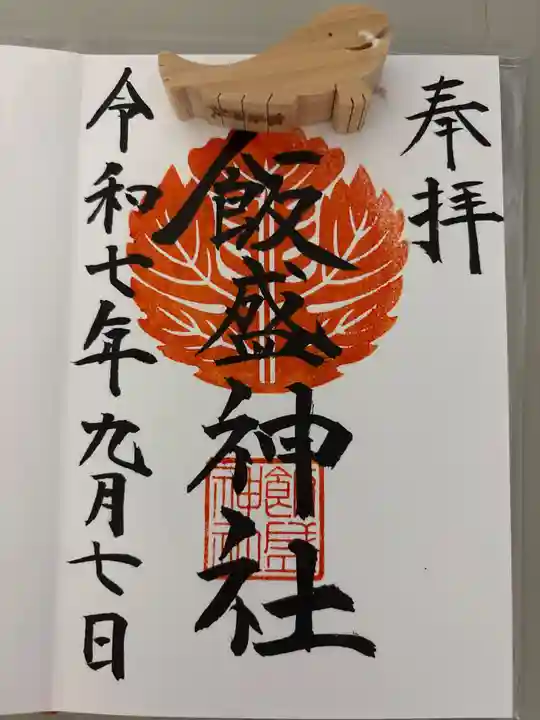 奉拝
飯盛神社
飯盛神社
令和七年九月七日